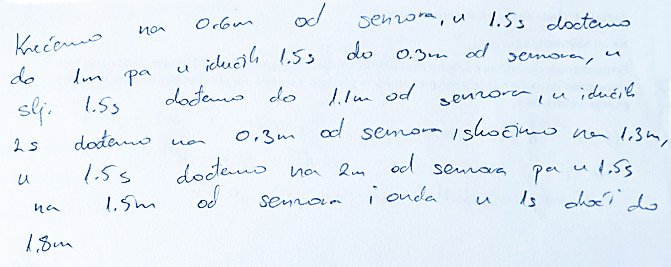 Krećemo na 0.6m od senzora, u 1.5s dođemo
do 1m pa u idućih 1.5s do 0.3m od senzora, u
slj. 1.5s dođemo do 1.1m od senzora, u idućih
2s dođemo na 0.3m od senzora, skočimo na 1.3m,
u 1.5s dođemo na 2m od senzora pa u 1.5s
na 1.5m od senzora i onda u 1s doći do
1.8m